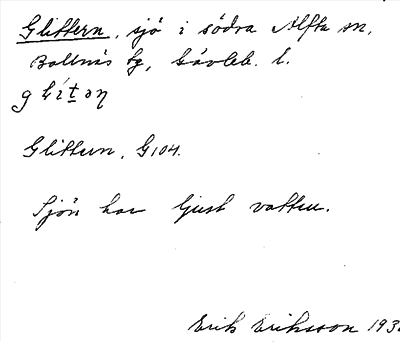 Glittern, sjö i södra Alfta sn,
Bollnäs tg, Gävleb. l.
glítən
Glittern, G104.
Sjön har ljust vatten.
Erik Eriksson 193